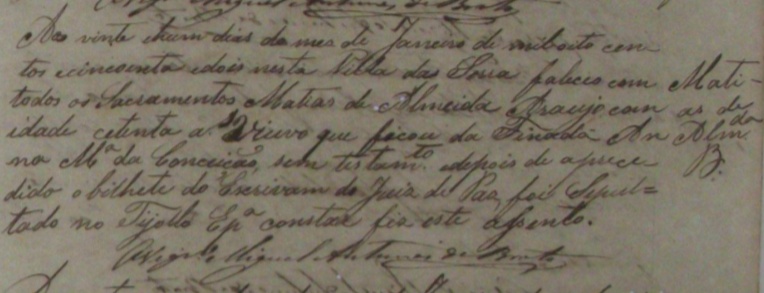 Aos vinte ehum dias do mes de Janeiro de mil oito cen
tos ecincoenta edois nesta Villa da faleceo com Mati-
todos os Sacramentos Matias de Almeida Araujo com as de
idade cetenta a.s Viuvo que ficou da Finada An Alm.da
na M.a da Conceição, sem testam.to edepois de apre
dido obilhete do Escrivam do Juiz de Paz, foi Sepul=
tado no Tijollo Ep.a constar fiz este assento. B.
O Vig.o Miguel Antunes de Brito